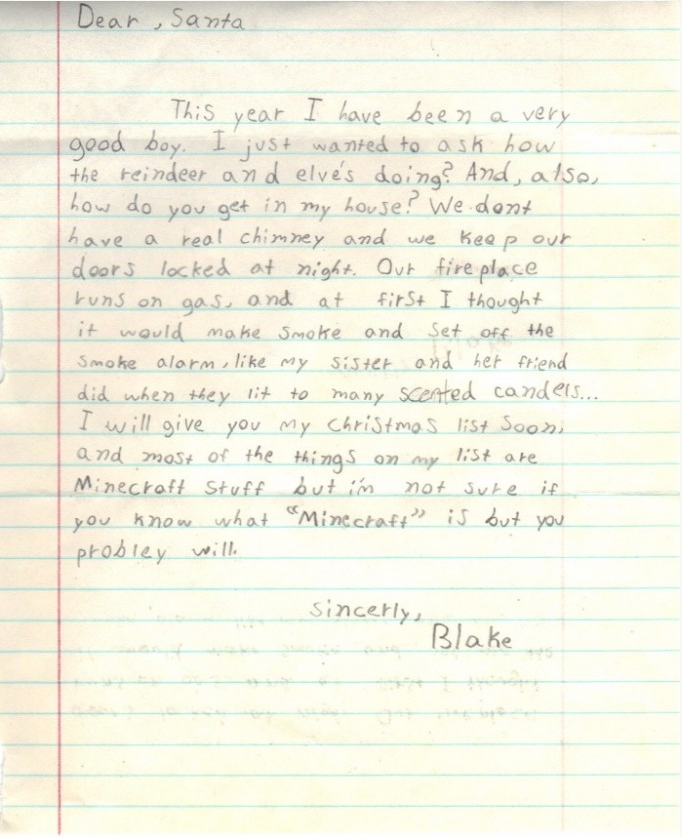 Dear, Santa
This year I have been a very
good boy. I just wanted to ask how
the reindeer and elve's doing? And, also,
how do you get in my house? We dont
have a real chimney and we keep our
doors locked at night. Our fireplace
runs on gas, and at first I thought
it would make smoke and set off the
smoke alarm, like my sister and her friend
did when they lit to many scented candels...
I will give you my christmas list soon,
and most of the things on my list are
Minecraft stuff but i'm not sure if
you know what "Minecraft" is but you
probley will.
sincerly,
Blake